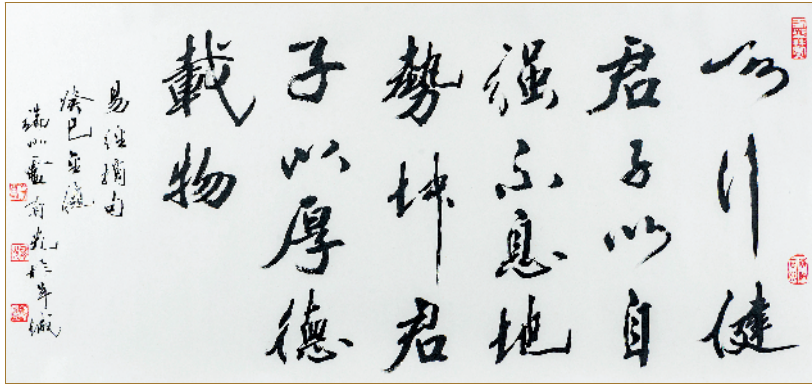 天行健
君子以自
强不息地
势坤君
子以厚德
載物
易经摘句
癸巳